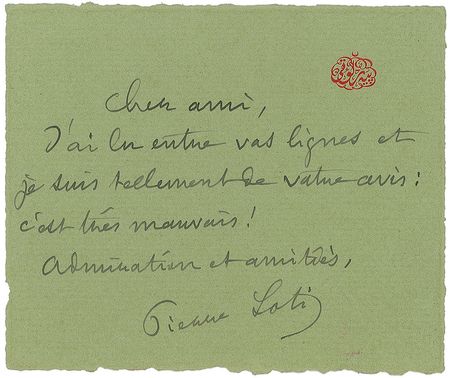 Cher ami,
J'ai lu entre vos lignes et
je suis tellement de votre avis :
c'est très mauvais !
Admiration et amitiés,
Pierre Loti